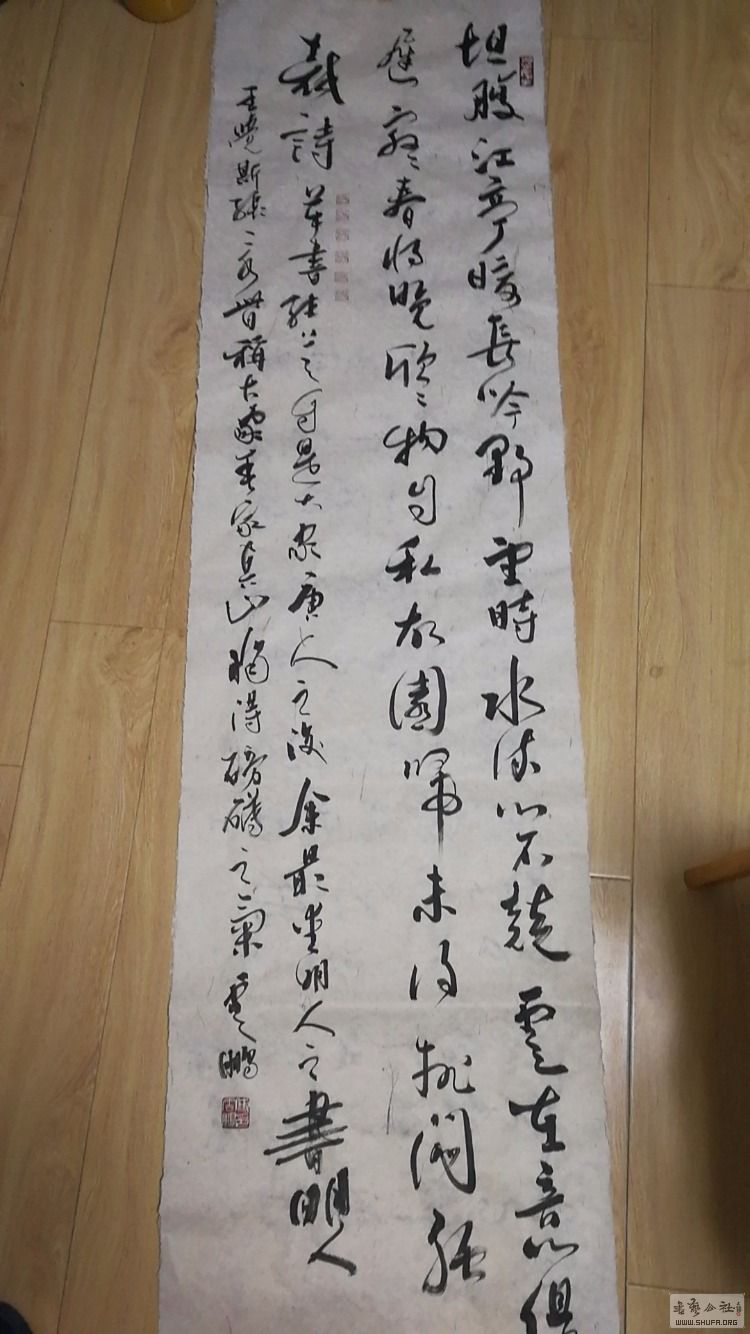 坦腹江亭暖長吟野望時水流心不競雲在意俱
遲寂寂春將晚欣欣物自私故園歸未得排悶強
裁詩 草書張芝是大家唐人之後余最愛明人之書明人
王覺斯張二水昔稱大家吾家真山獨得磅礴之氣雲鵬
書藝公社
WWW.SHUFA.ORG